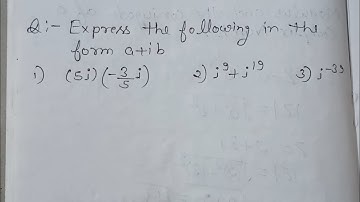 Q:- Express the following in the
form a+ib
1) (5i)(-3/5 i) 2) i⁹+i¹⁹ 3) i⁻³⁹